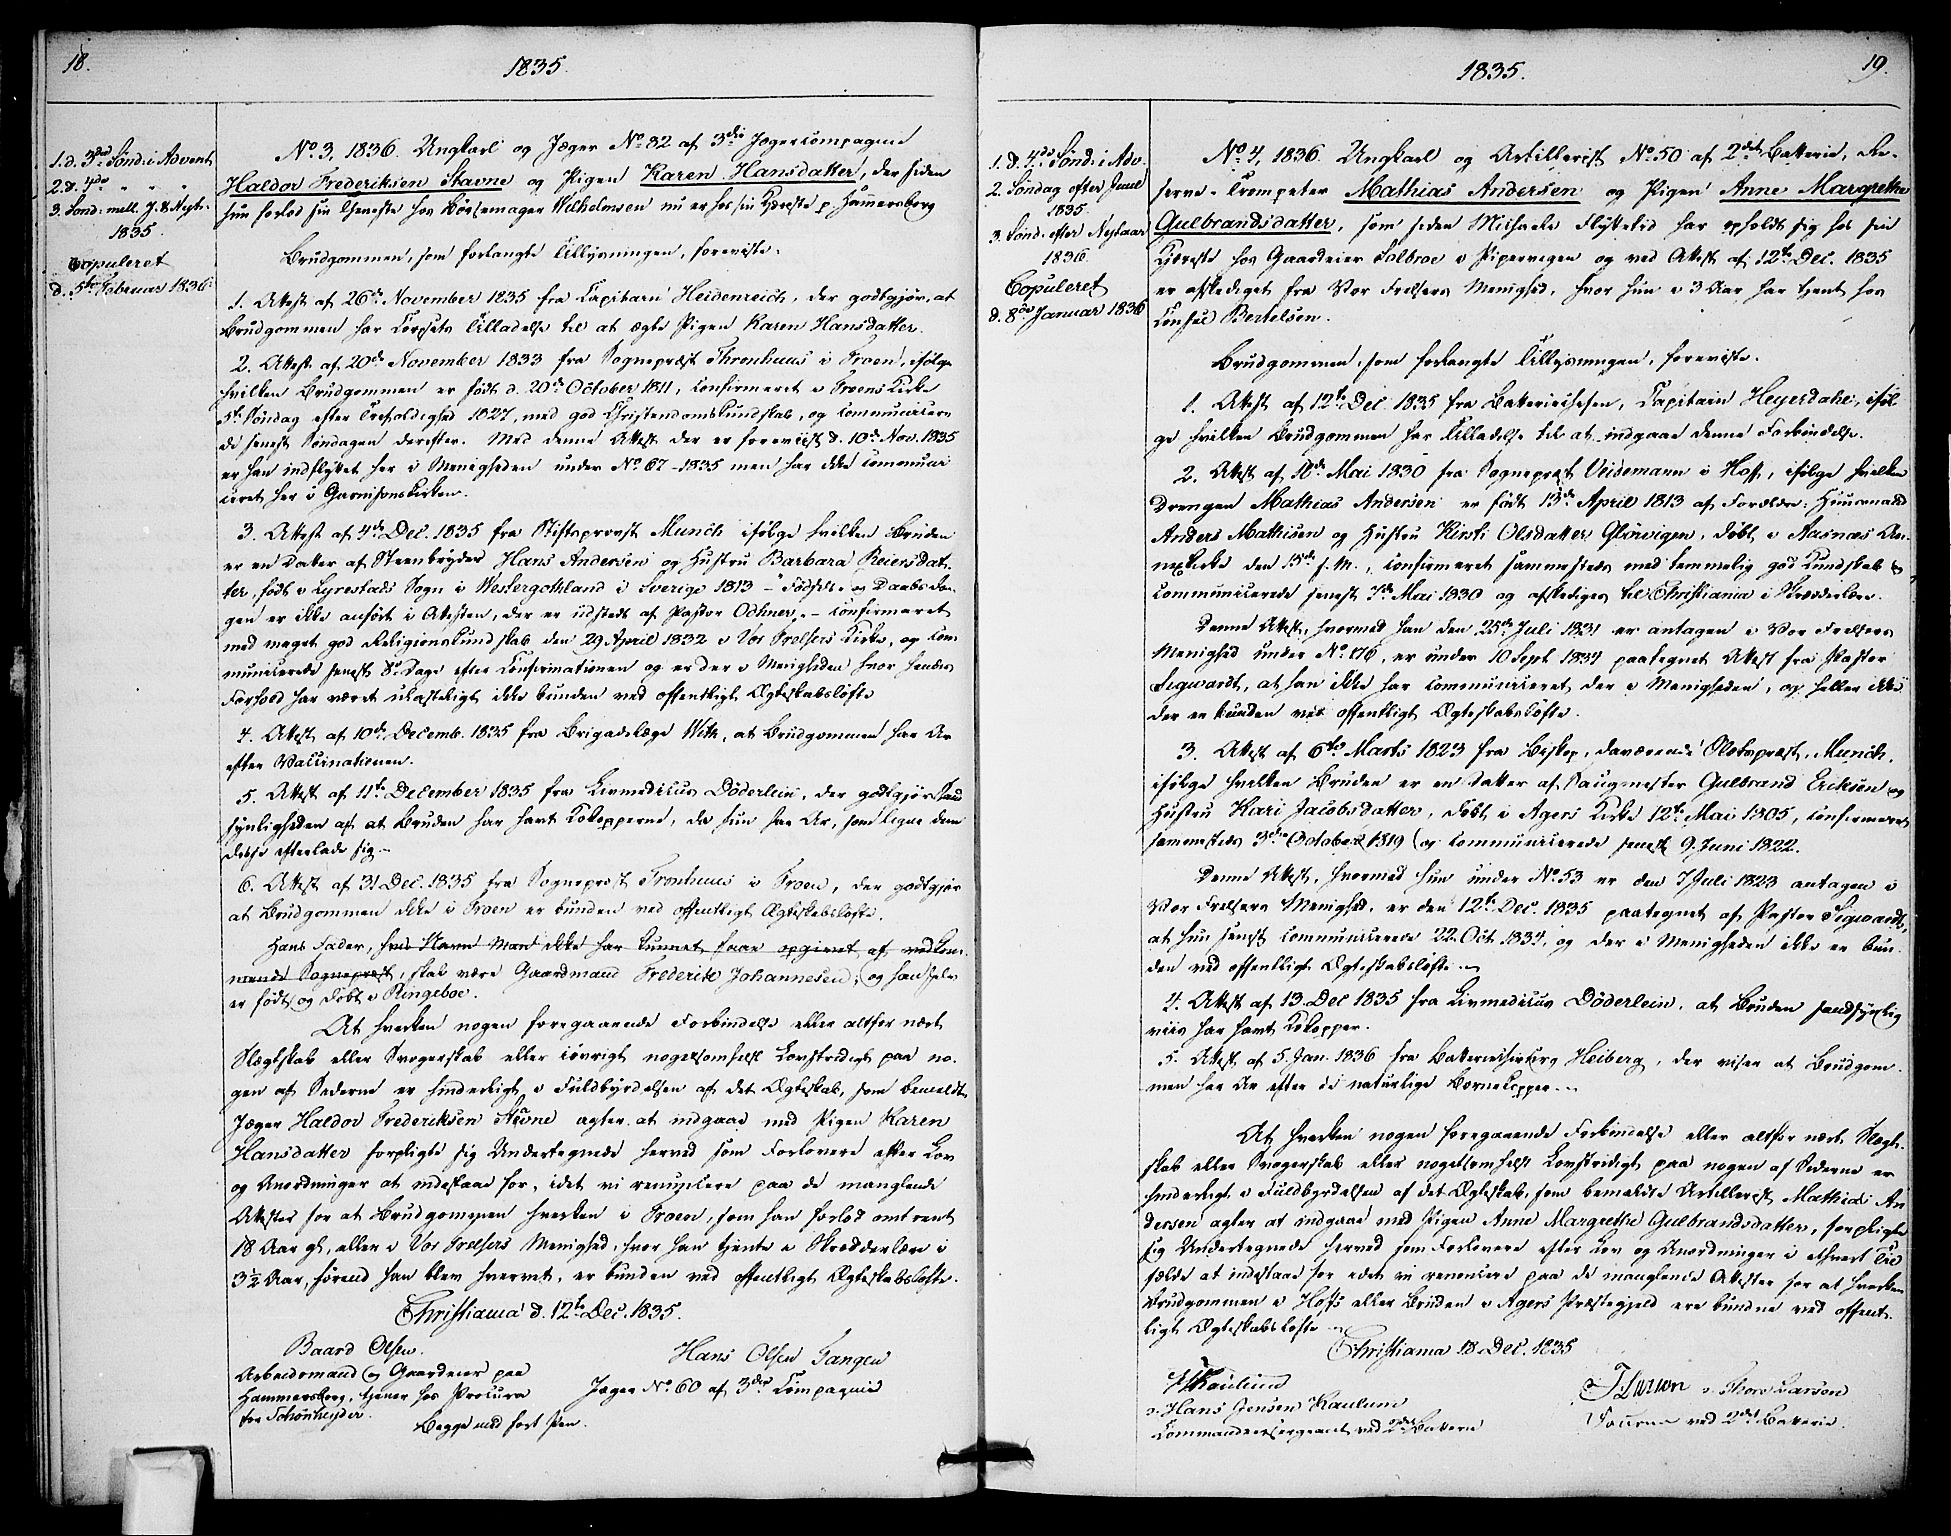 18.
1835.
1. d. 3die Sönd. i Advent
2. d. 4de " " "
3. Sönd. mell. J. & Nytr.
1835.
Copuleret
d. 5te Februar 1836.
No. 3, 1836. Ungkarl og Jæger No. 82 af 3die Jægercompagnie
Haldor Frederiksen Stavne og Pigen Karen Hansdatter, der siden
hun forlod sin Tjeneste hos Bössemager Wilhelmsen nu er hos sin Kjereste p. Hamersborg
Brudgommen, som forlangte Tillysningen, foreviste.
1. Attest af 26de November 1835 fra Capitain Heidenreich, der godtgjör, at
Brudgommen har Corpsets Tilladelse til at ægte Pigen Karen Hansdatter.
2. Attest af 20de November 1833 fra Sognepræst Thronhuus i Froen, ifölge
hvilken Brudgommen er födt d. 20de October 1811, confirmeret i Froens Kirke
5te Söndag efter Trefoldighed 1827, med god Christendomskundskab, og communicere-
de senest Söndagen derefter. Med denne Attest der er foreviist d. 10de Nov. 1835
er han indflyttet her i Menigheden under No. 67 - 1835 men har ikke communi-
ceret her i Garnisonskirken.
3. Attest af 4de Dec. 1835 fra Stiftsprovst Munch ifölge hvilken Bruden
er en Datter af Steenbryder Hans Andersen og Hustru Barbara Reiersdat-
ter, födt i Lyrestads Sogn i Westergothland i Sverige 1813 - Födsels- og Daabsda-
gen er ikke anfört i Attesten, der er udstedt af Pastor Odhner, - confirmeret
med meget god Religionskundskab den 29 April 1832 i Vor Frelsers Kirke, og com-
municerede senest 8te Dage efter Confirmationen og er der i Menigheden hvor hendes
Forhold har været ulasteligt ikke bunden ved offentligt Ægteskabslöfte
4. Attest af 10de Decemb. 1835 fra Brigadelæge With, at Brudgommen har Ar
efter Vaccinationen.
5. Attest af 11te December 1835 fra Livmedicus Döderlein, der godtgjör Sand-
synligheden af at Bruden har havt Kokopperne, da hun har Ar, som ligne dem
disse efterlade sig.
6. Attest af 31 Dec. 1835 fra Sogneprest Tronhuus i Froen, der godtgjör
at Brudgommen ikke i Froen er bunden ved offentligt Ægteskabslöfte.
Hans Fader, hvis Navn man ikke har kunnet faae opgivet af vedkom-
mende Sognepræst, skal være Gaardmand Frederik Johannesen; og han selv
er födt og döbt i Ringeboe.
At hverken nogen foregaaende Forbindelse eller altfor nært
Slægtskab eller Svogerskab eller iövrigt nogetsomhelst Lovstridigt paa no-
gen af Siderne er hinderligt i Fuldbyrdelsen af det Ægteskab, som bemeldte
Jæger Haldor Frederiksen Stavne agter at indgaae med Pigen Karen
Hansdatter forpligte sig Undertegnede herved som Forlovere efter Lov
og Anordninger at indestaae for, idet vi renuncere paa de manglende
Attester for at Brudgommen hverken i Froen, som han forlod omtrent
18 Aar gl., eller i Vor Frelsers Menighed, hvor han tjente i Skrædderlære i
3½ Aar, förend han blev hvervet, er bunden ved offentligt Ægteskabslöfte.
Christiania d. 12te Dec. 1835.
Baard Olsen.
Arbeidsmand og Gaardeier paa
Hammersborg, tjener hos Procura-
tor Schönheyder.
Hans Olsen Tangen
Jæger No. 60 af 3die Compagnie
Begge med fört Pen.
19.
1835.
1. d. 4de Sönd. i Adv.
2. Söndag efter Juul
1835.
3. Sönd. efter Nytaar
1836.
Copuleret
d. 8de Januar 1836
No. 4, 1836. Ungkarl og Artillerist No. 50 af 2det Batterie, Re-
serve-Trompeter Mathias Andersen og Pigen Anne Margrethe
Gulbrandsdatter, som siden Michaeli Flyttetid har opholdt sig hos sin
Kjæreste hos Gaardeier Solbroe i Pipervigen og ved Attest af 12te Dec. 1835
er afskediget fra Vor Frelsers Menighed, hvor hun i 3 Aar har tjent hos
Consul Bertelsen.
Brudgommen, som forlangte Tillysningen, foreviste.
1. Attest af 12te Dec. 1835 fra Batteriechefen, Capitain Heyerdahl, iföl-
ge hvilken Brudgommen har Tilladelse til at indgaae denne Forbindelse.
2. Attest af Mai 1830 fra Sognepræst Veidemann i Hoff, ifölge hvilken
Drengen Mathias Andersen er födt 13de April 1813 af Forældre: Huusmand
Anders Mathisen og Hustru Kirsti Olsdatter, döbt i Aasnæs An-
nexkirke den 15de s. M., confirmeret sammesteds med temmelig god Kundskab &
communicerede senest Mai 1830 og afskediges til Christiania i Skræderlære.
Denne Attest, hvormed han den 25de Juli 1831 er antagen i Vor Frelsers
Menighed under No. 176, er under 10 Sept 1834 paategnet Attest fra Pastor
Sigwardt, at han ikke har communiceret der i Menigheden, og heller ikke
der er bunden ved offentligt Ægteskabslöfte.
3. Attest af 6te Marts 1823 fra Biskop, daværende Slotspræst, Munch,
ifölge hvilken Bruden er en Datter af Saugmester Gulbrand Ericksen og
Hustru Kari Jacobsdatter, döbt i Agers Kirke 12te Mai 1805, confirmeret
sammesteds 3die October 1819 og communicerede senest 9. Juni 1822.
Denne Attest, hvormed hun under No. 53 er den 7 Juli 1823 antagen i
Vor Frelsers Menighed, er den 12te Dec. 1835 paategnet af Pastor Sigwardt,
at hun senest communicerede 22. Oct 1834, og der i Menigheden ikke er bun-
den ved offentligt Ægteskabslöfte.
4. Attest af 13. Dec 1835 fra Livmedicus Döderlein, at Bruden sandsynlig-
viis har havt Kokopper.
5. Attest af 5. Jan. 1836 fra Batteriechirurg Heiberg, der viser at Brudgom-
men har Ar efter de naturlige Börnekopper.
At hverken nogen foregaaende Forbindelse eller altfor nært Slægt-
skab eller Svogerskab eller nogetsomhelst Lovstridigt paa nogen af Siderne er
hinderligt i Fuldbyrdelsen af det Ægteskab, som bemeldte Artillerist Mathias An-
dersen agter at indgaae med Pigen Anne Margrethe Gulbrandsdatter, forpligte
sig Undertegnede herved som Forlovere efter Lov og Anordninger i ethvert Til-
fælde at indestaae for idet vi renoncere paa de manglende Attester for at hverken
Brudgommen i Hoffs eller Bruden i Agers Præstegjeld ere bundne ved offent-
ligt Ægteskabslöfte
Christiania 18 Dec. 1835
HKaulum
o: Hans Jensen Kaulum
Commandeersergeant ved 2det Batterie
TLarson o: Thore Larson
Fourer ved 2det Batterie.